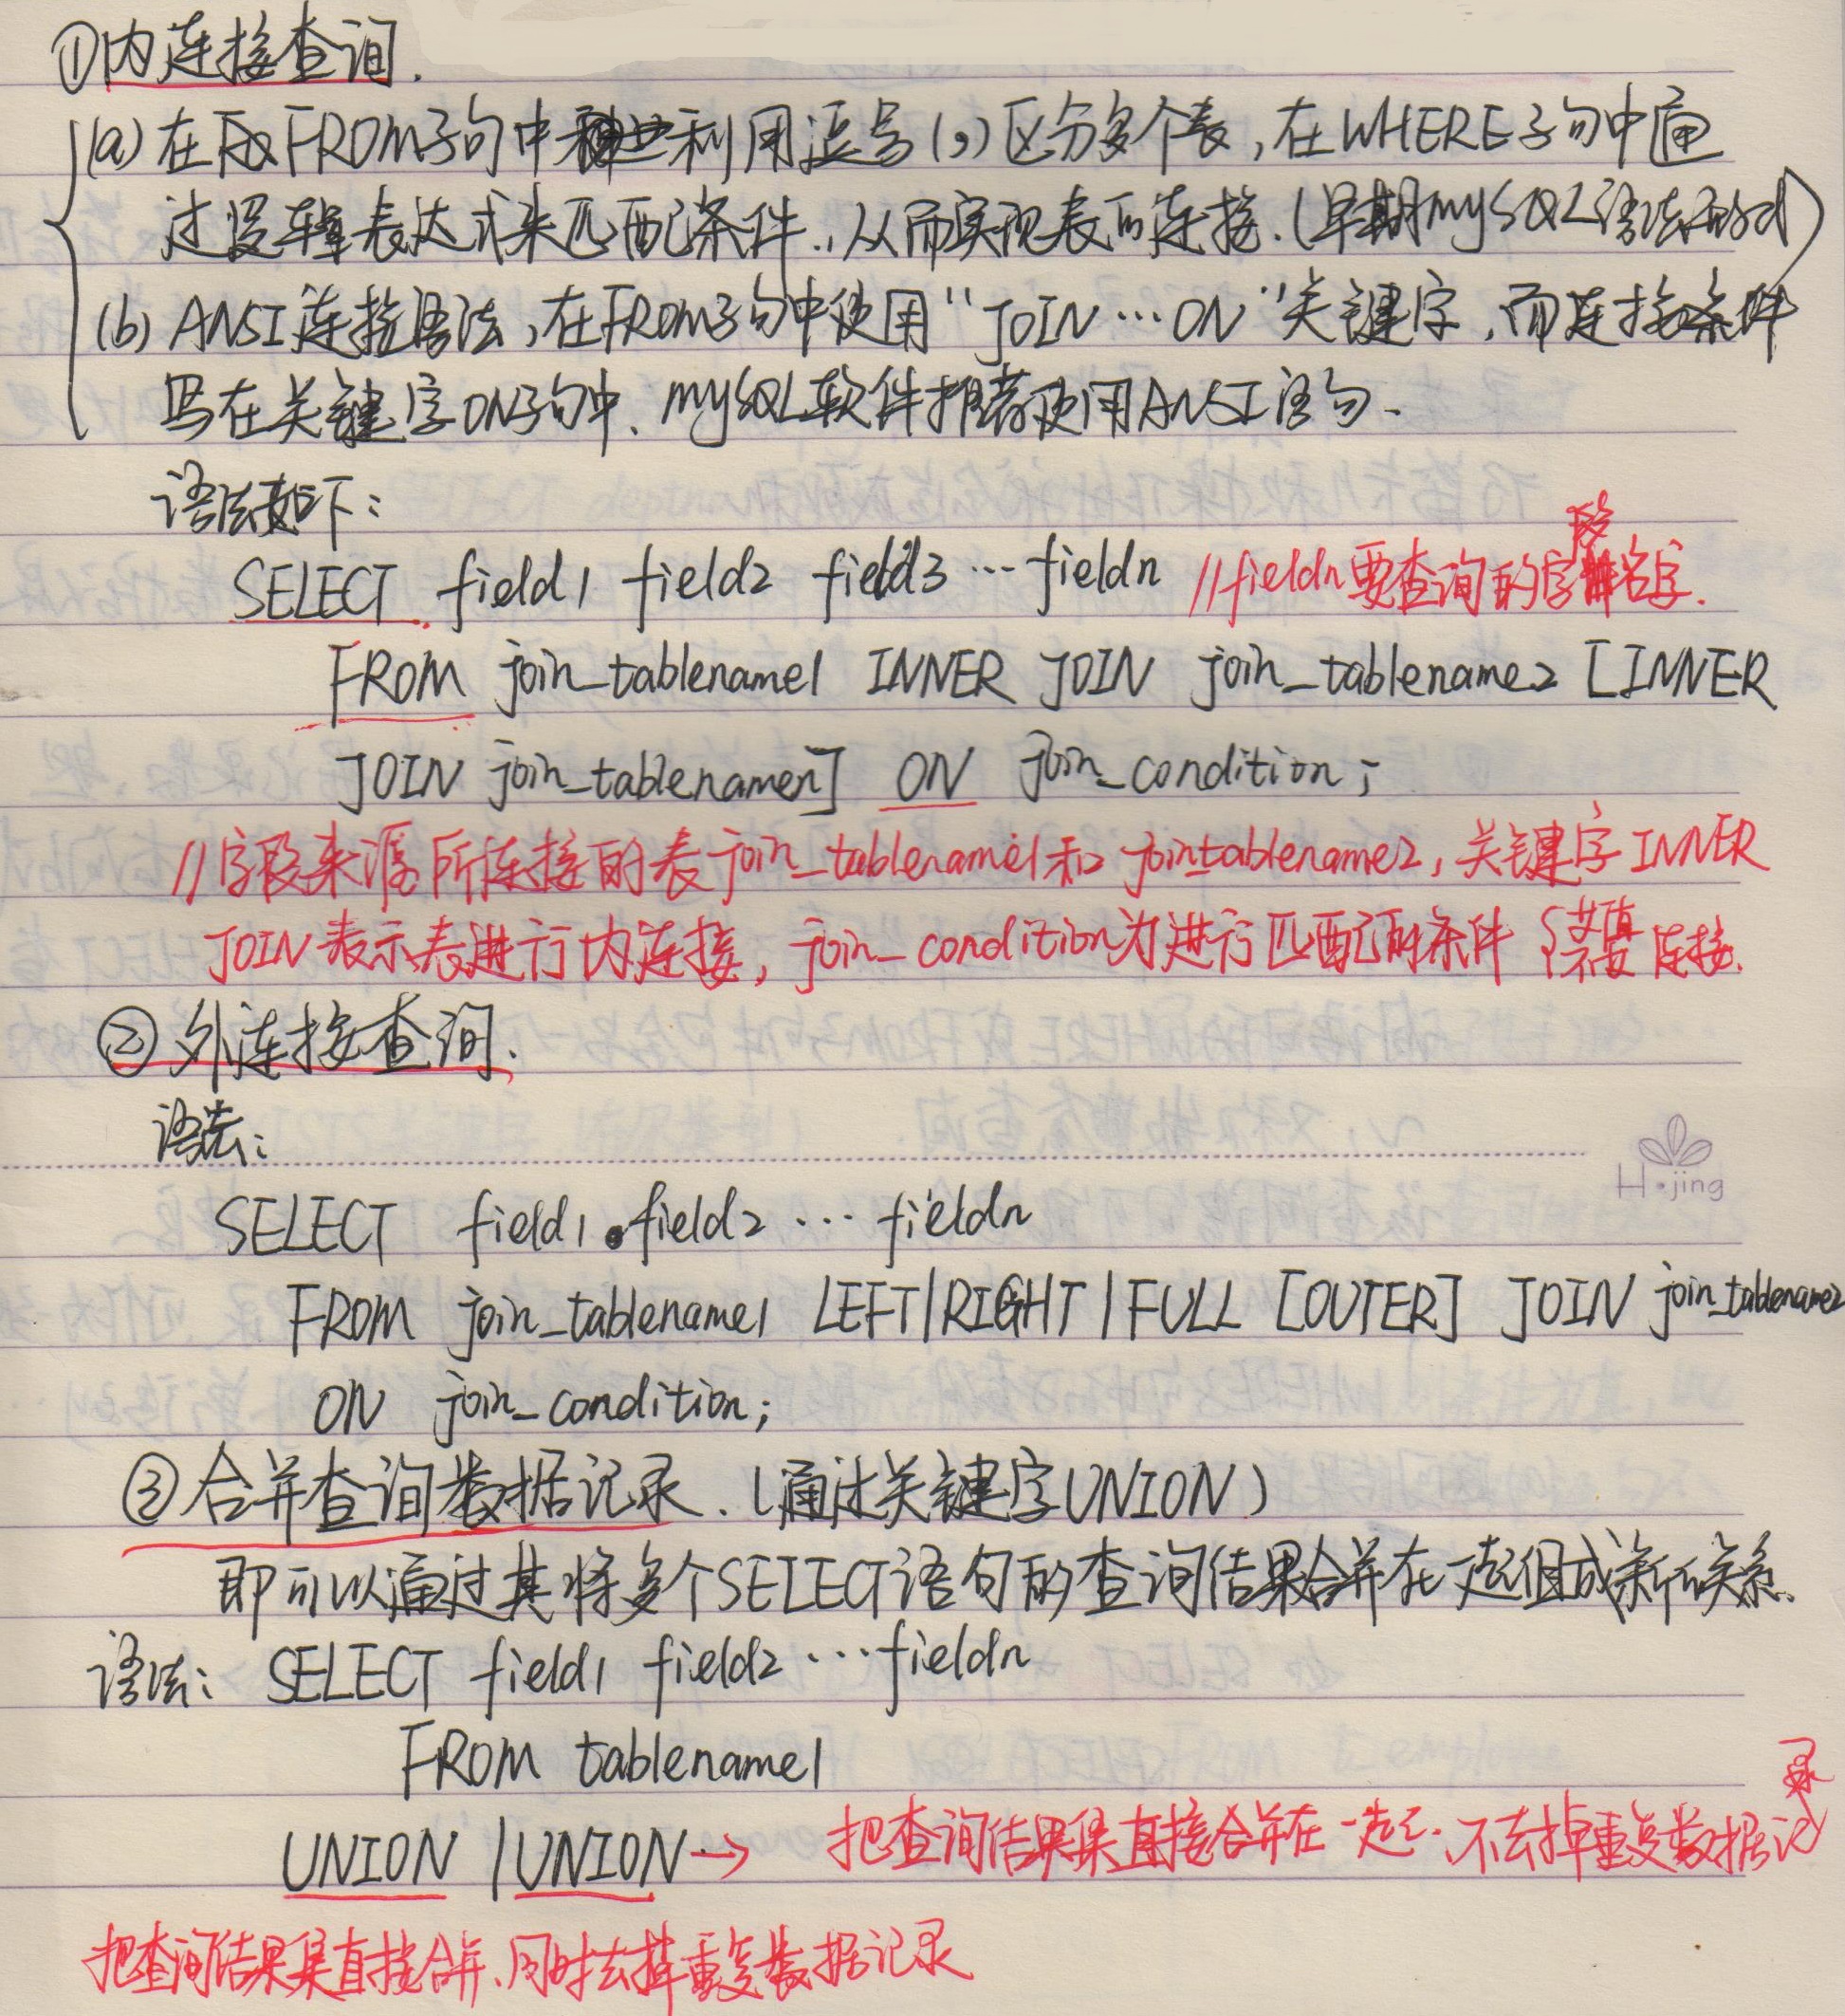 ①内连接查询.
(a) 在FROM子句中利用逗号(,)区分多个表,在WHERE子句中通
过逻辑表达式来匹配条件.,从而实现表的连接.(早期mySQL语法形式)
(b) ANSI连接语法,在FROM子句中使用“JOIN…ON”关键字,而连接条件
写在关键字ON子句中.mySQL软件推荐使用ANSI语句.
语法如下:
SELECT field1 field2 field3 … fieldn //fieldn要查询的字段名字.
FROM join_tablename1 INNER JOIN join_tablename2 [INNER
JOIN join_tablenamen] ON join_condition;
//字段来源所连接的表join_tablename1和jointablename2,关键字INNER
JOIN表示表进行内连接,join_condition为进行匹配的条件 连接.
②外连接查询.
语法:
H·jing
SELECT field1 field2 … fieldn
FROM join_tablename1 LEFT|RIGHT|FULL [OUTER] JOIN join_tablename2
ON join_condition;
③合并查询数据记录.(通过关键字UNION)
即可以通过其将多个SELECT语句的查询结果合并在一起组成新的关系.
语法: SELECT field1 field2 … fieldn
FROM tablename1
UNION |UNION→ 把查询结果集直接合并在一起.不去掉重复数据记录
把查询结果集直接合并、同时去掉重复数据记录